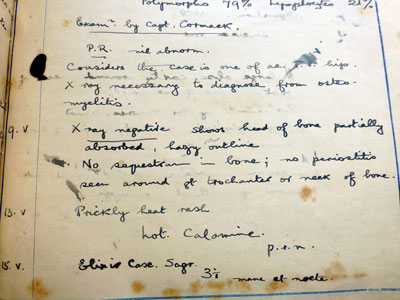 Polymorphs 79% Lymphocytes 21%
Examn. by Capt. Cormack.
P.R. nil abnorm.
Considers the case is one of ac. hip.
X ray necessary to diagnose from osteo-
myelitis.
9. V X ray negative shows head of bone partially
absorbed, hazy outline
No sequestrum in bone; no periostitis
seen around gt trochanter or neck of bone.
13. V Prickly heat rash
Lot. Calamine.
p.r.n.
15. V. Elixir Casc. Sagr.
mane et nocte.